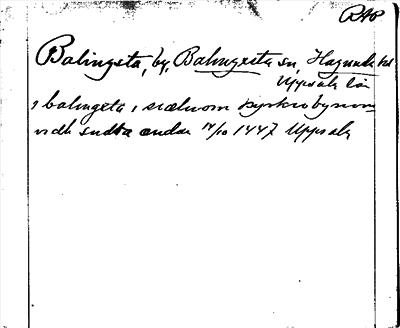 RAP
Balingsta, by, Balingsta sn, Hagunda hd
Uppsala län
i balingsta i siælwom kyrkiobynom
vidh sudra ændan 14/10 1447 Uppsala